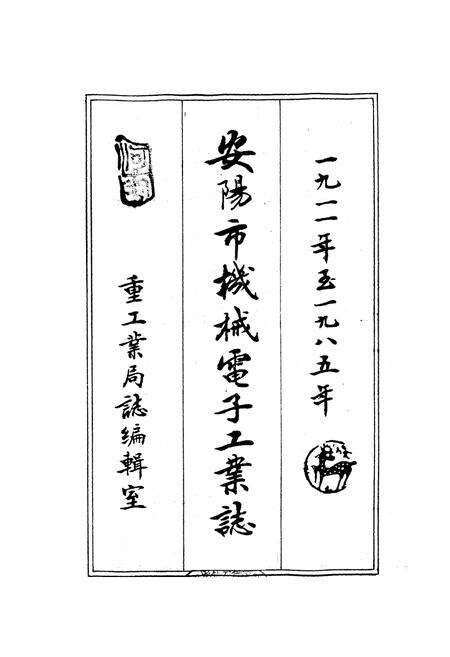 一九一一年至一九八五年
安陽市機械電子工業誌
重工業局誌編輯室